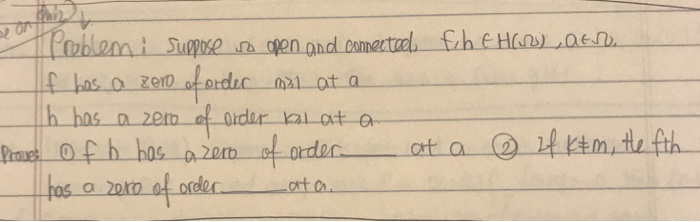 be on Quiz
Problem: Suppose Ω open and connected, f,h ∈ H(Ω), a∈Ω.
f has a zero of order m≥1 at a
h has a zero of order k≥1 at a
Prove: ① f h has a zero of order ____ at a ② If k≠m, the f+h
has a zero of order ____ at a.